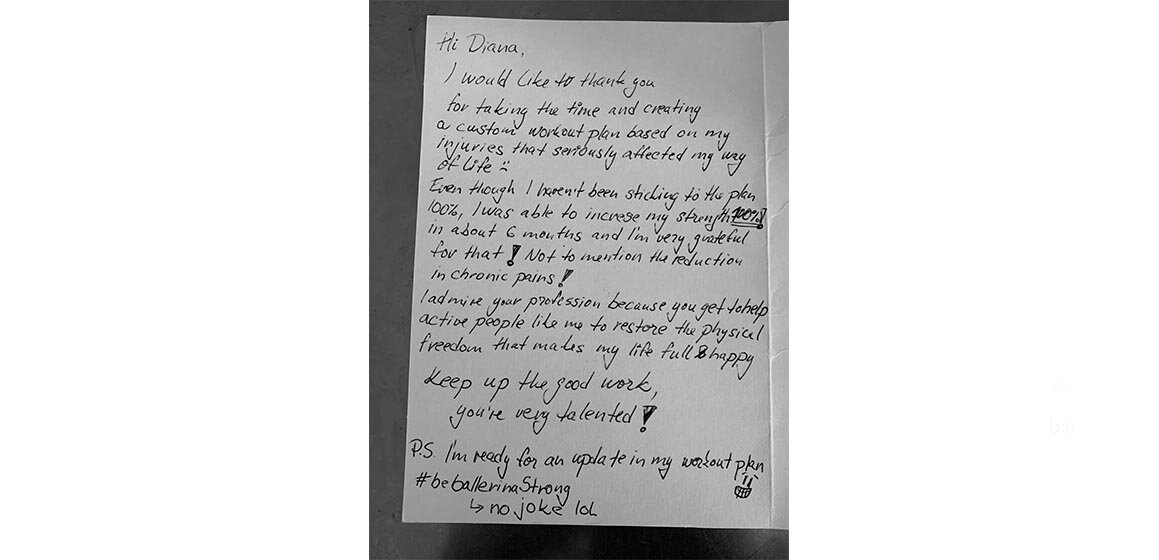 Hi Diana,
I would like to thank you
for taking the time and creating
a custom workout plan based on my
injuries that seriously affected my way
of life :(
Even though I haven't been sticking to the plan
100%, I was able to increse my strenght 100%!
in about 6 months and I'm very grateful
for that! Not to mention the reduction
in chronic pains!
I admire your profession because you get to help
active people like me to restore the physical
freedom that makes my life full & happy
Keep up the good work,
you're very talented!
P.S. I'm ready for an update in my workout plan
#beballerinaStrong
↳ no joke lol